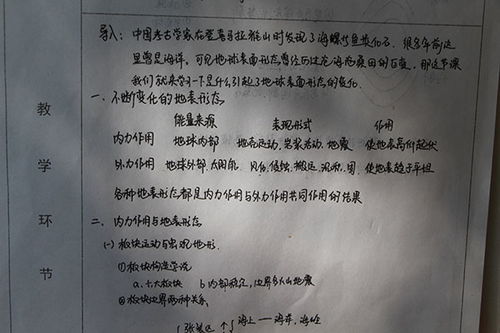 导入：中国考古学家在登喜马拉雅山时发现了海螺等鱼类化石，很多年前这
里曾是海洋。可见地球表面形态曾经历过沧海桑田的巨变，那这节课
我们就来学习一下是什么引起了地球表面形态的变化
一、不断变化的地表形态
能量来源 表现形式 作用
内力作用 地球内部 地壳运动、岩浆活动、地震 使地表高低起伏
外力作用 地球外部、太阳能 风化、侵蚀、搬运、沉积、固 使地表趋于平坦
各种地表形态都是内力作用与外力作用共同作用的结果
二、内力作用与地表形态
(一) 板块运动与宏观地形
①板块构造学说
a.六大板块 b内部稳定，边界多火山地震
②板块边界两种关系
张裂区 海上——海洋、海岭
教
学
环
节